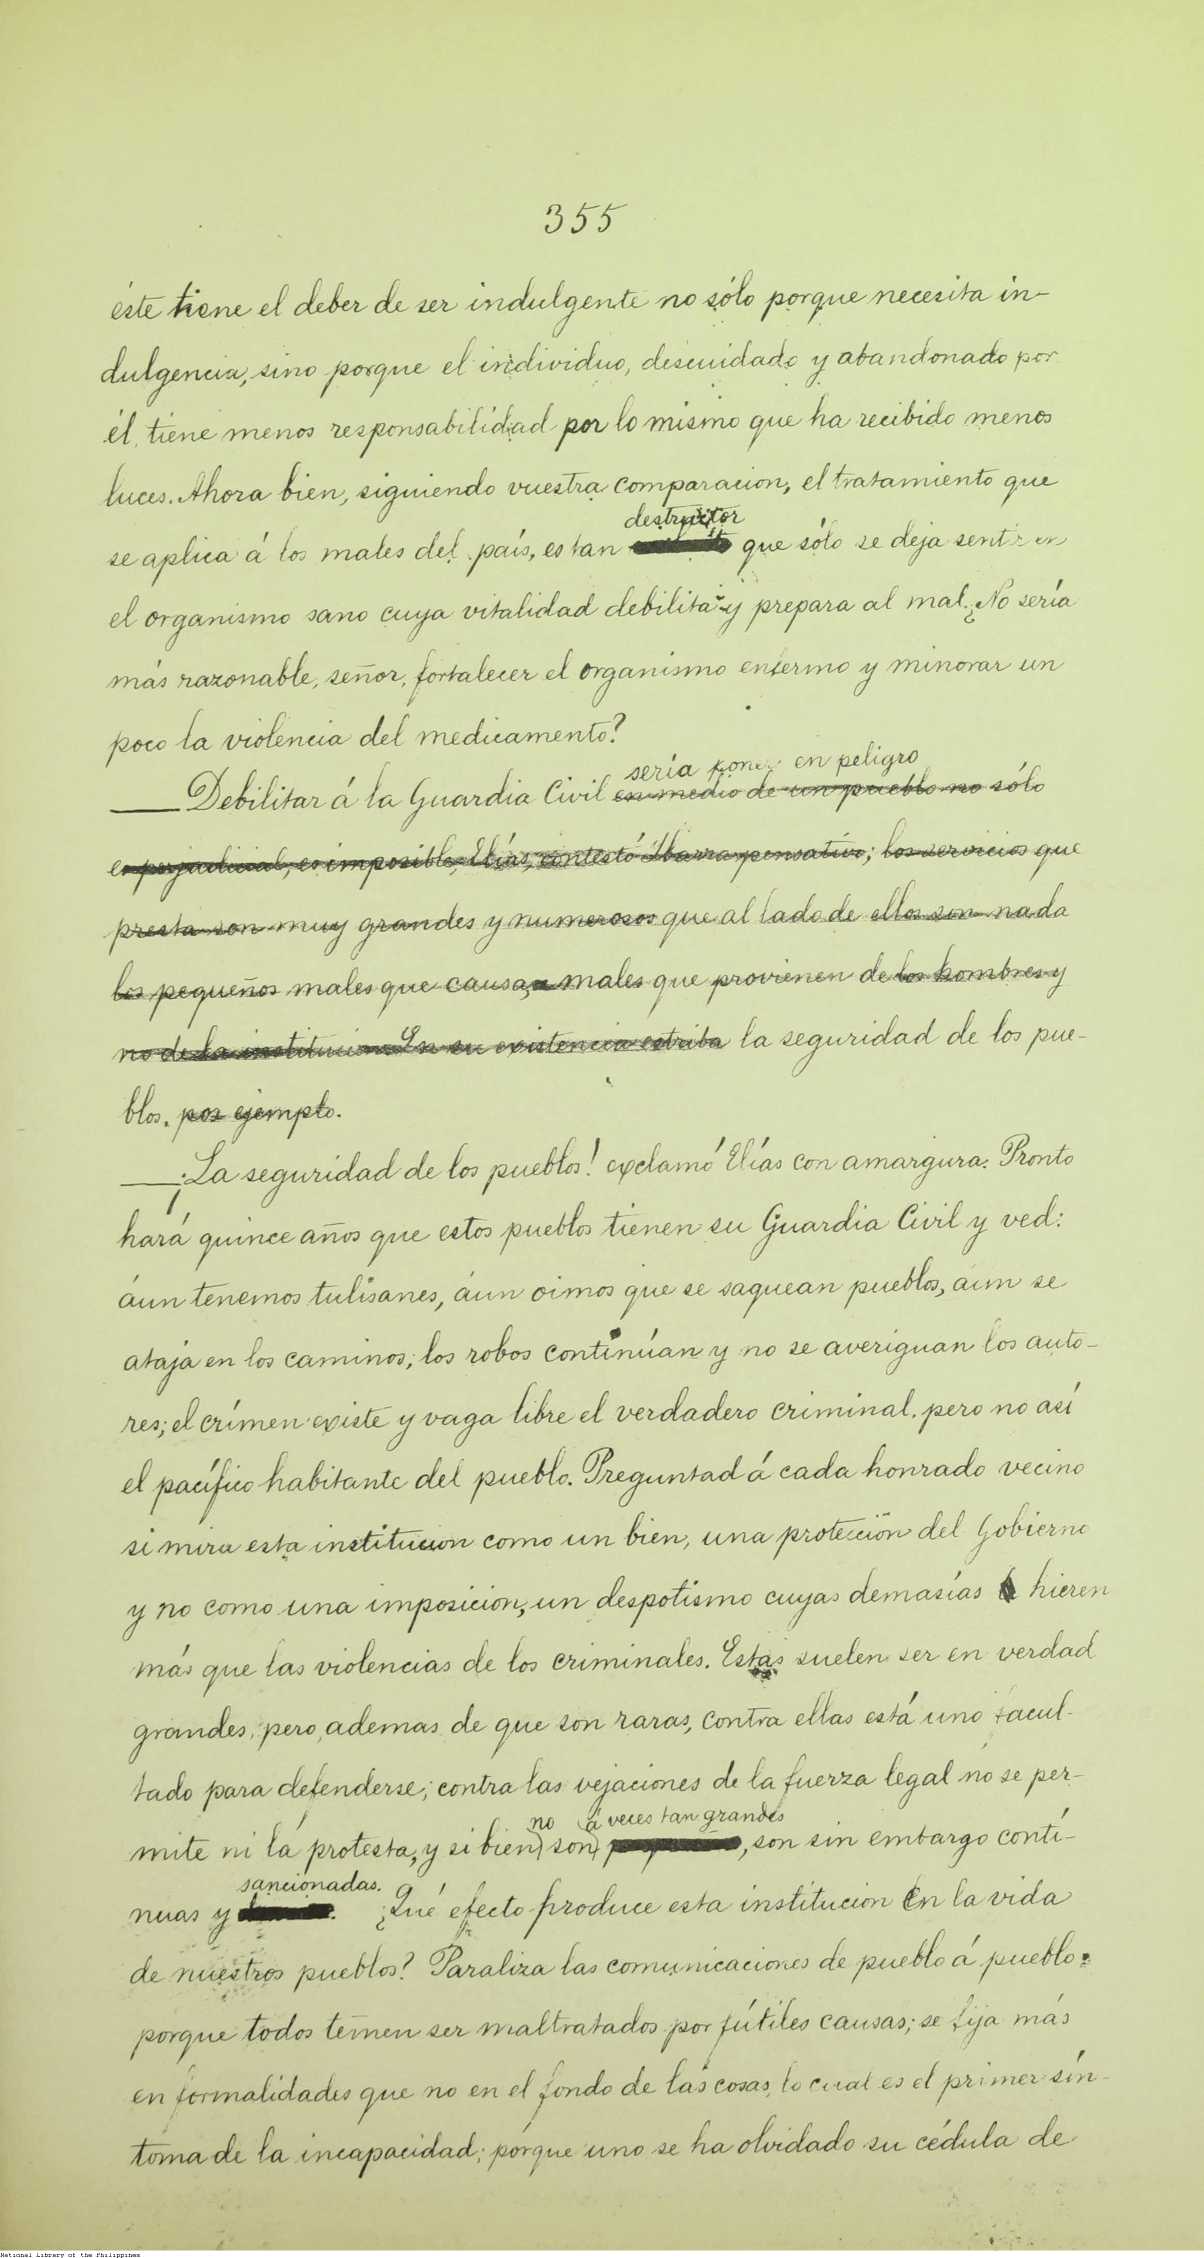 355
éste tiene el deber de ser indulgente no sólo porque necesita in-
dulgencia, sino porque el individuo, descuidado y abandonado por
él, tiene menos responsabilidad por lo mismo que ha recibido menos
luces. Ahora bien, siguiendo vuestra comparacion, el tratamiento que
destructor
se aplica á los males del país, es tan que sólo se deja sentir en
el organismo sano cuya vitalidad debilita y prepara al mal. ¿No sería
más razonable, señor, fortalecer el organismo enfermo y minorar un
poco la violencia del medicamento?
sería poner en peligro
—Debilitar á la Guardia Civil en medio de un pueblo no sólo
es perjudicial, es imposible, Elías, contestó Ibarra pensativo; los servicios que
presta son muy grandes y numerosos que al lado de ellos son nada
los pequeños males que causa, males que provienen de los hombres y
no de la institucion. En su existencia estriba la seguridad de los pue-
blos. por ejemplo.
—¡La seguridad de los pueblos! exclamó Elías con amargura. Pronto
hará quince años que estos pueblos tienen su Guardia Civil y ved:
áun tenemos tulisanes, áun oimos que se saquean pueblos, áun se
ataja en los caminos; los robos continúan y no se averiguan los auto-
res; el crímen existe y vaga libre el verdadero criminal, pero no así
el pacífico habitante del pueblo. Preguntad á cada honrado vecino
si mira esta institucion como un bien, una proteccion del Gobierno
y no como una imposicion, un despotismo cuyas demasías hieren
más que las violencias de los criminales. Estas suelen ser en verdad
grandes, pero, ademas de que son raras, contra ellas está uno facul-
tado para defenderse; contra las vejaciones de la fuerza legal no se per-
no á veces tan grandes
mite ni la protesta, y si bien son , son sin embargo contí-
sancionadas.
nuas y . ¿Qué efecto produce esta institucion en la vida
de nuestros pueblos? Paraliza las comunicaciones de pueblo á pueblo
porque todos temen ser maltratados por fútiles causas; se fija más
en formalidades que no en el fondo de las cosas, lo cual es el primer sín-
toma de la incapacidad; porque uno se ha olvidado su cédula de
National Library of the Philippines